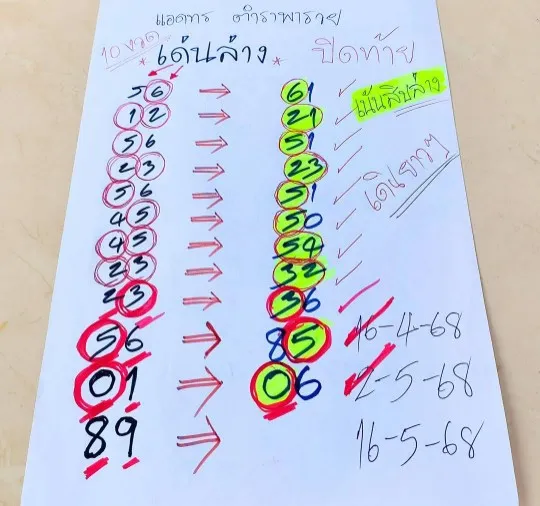 แอดทร ตำราพาราย
10 งวด *เด่นล่าง* ปิดท้าย
56 → 61 เน้นสิบล่าง
12 → 21
56 → 51
23 → 23 เดินยาวๆ
56 → 51
45 → 50
45 → 54
23 → 32
23 → 36
56 → 85 16-4-68
01 → 06 2-5-68
89 → 16-5-68